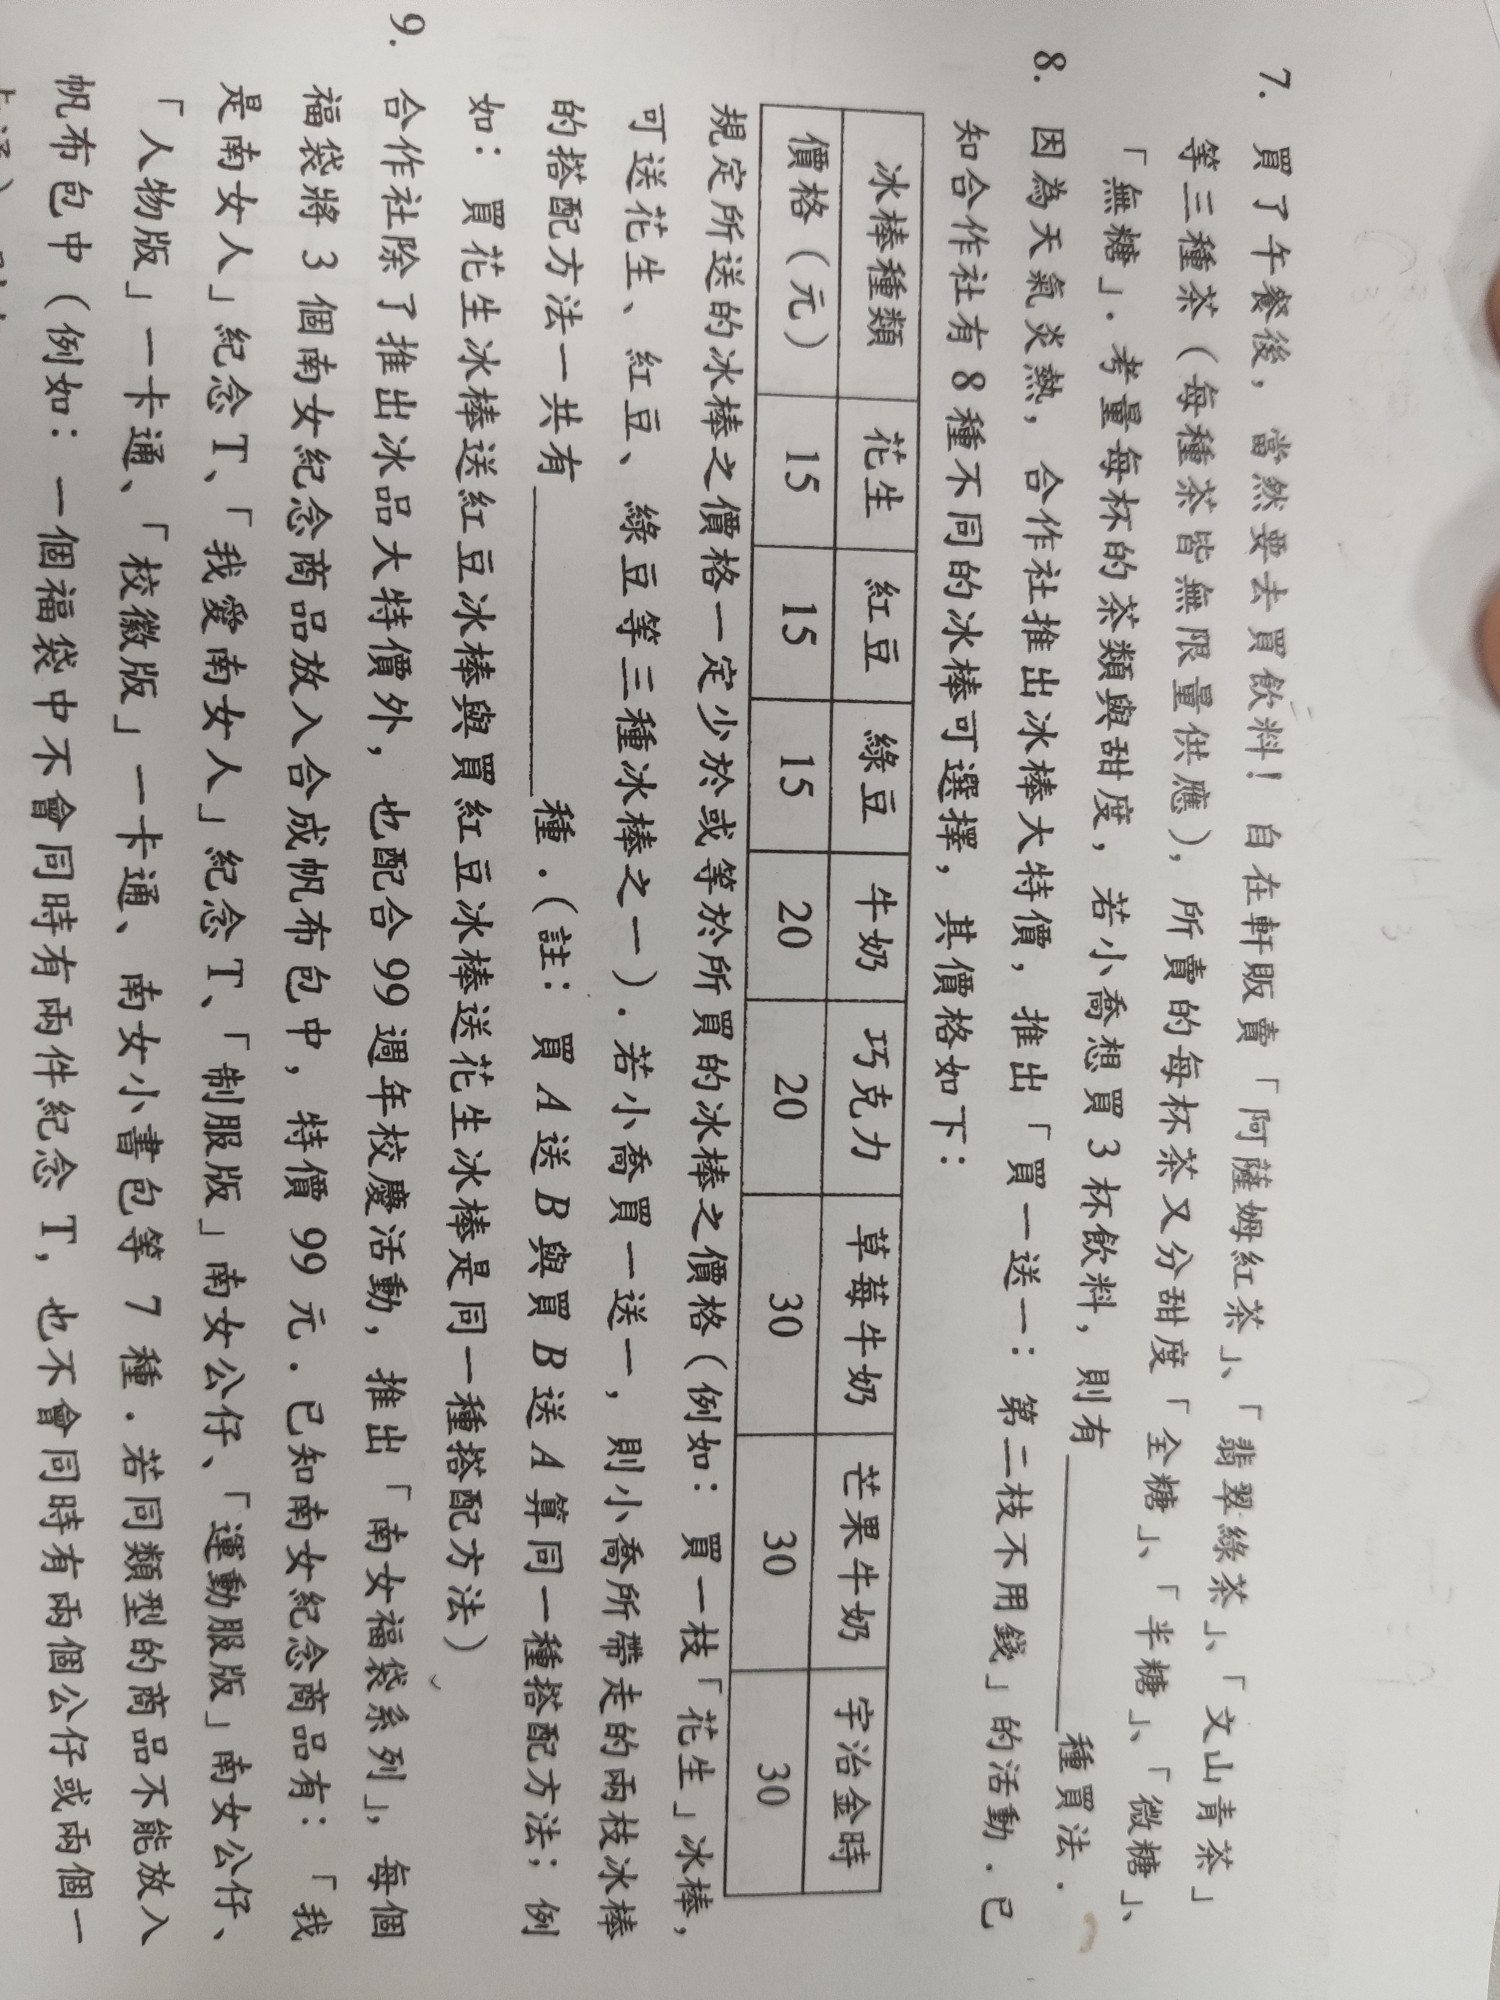 7. 買了午餐後，當然要去買飲料！自在軒販賣「阿薩姆紅茶」、「翡翠綠茶」、「文山青茶」
等三種茶（每種茶皆無限量供應），所賣的每杯茶又分甜度「全糖」、「半糖」、「微糖」、
「無糖」．考量每杯的茶類與甜度，若小喬想買 3 杯飲料，則有__________種買法．
8. 因為天氣炎熱，合作社推出冰棒大特價，推出「買一送一：第二枝不用錢」的活動．已
知合作社有 8 種不同的冰棒可選擇，其價格如下：
冰棒種類 花生 紅豆 綠豆 牛奶 巧克力 草莓牛奶 芒果牛奶 宇治金時
價格（元） 15 15 15 20 20 30 30 30
規定所送的冰棒之價格一定少於或等於所買的冰棒之價格（例如：買一枝「花生」冰棒，
可送花生、紅豆、綠豆等三種冰棒之一）．若小喬買一送一，則小喬所帶走的兩枝冰棒
的搭配方法一共有__________種．（註：買 A 送 B 與買 B 送 A 算同一種搭配方法；例
如：買花生冰棒送紅豆冰棒與買紅豆冰棒送花生冰棒是同一種搭配方法）
9. 合作社除了推出冰品大特價外，也配合 99 週年校慶活動，推出「南女福袋系列」，每個
福袋將 3 個南女紀念商品放入合成帆布包中，特價 99 元．已知南女紀念商品有：「我
是南女人」紀念 T、「我愛南女人」紀念 T、「制服版」南女公仔、「運動服版」南女公仔、
「人物版」一卡通、「校徽版」一卡通、南女小書包等 7 種．若同類型的商品不能放入
帆布包中（例如：一個福袋中不會同時有兩件紀念 T，也不會同時有兩個公仔或兩個一